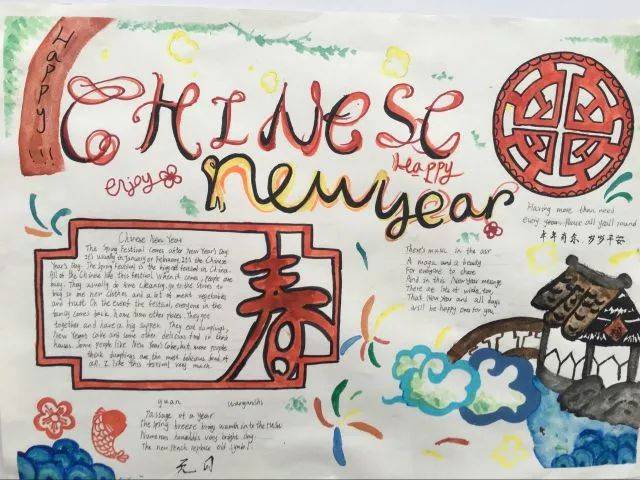 Happy!!!
CHINESE
Happy
enjoy
new year
Having more than need
every year, Peace all year round
年年有余，岁岁平安
Chinese New Year
The Spring Festival comes after New Year's Day.
It's usually in January or February. It's the Chinese
Year's Day. The Spring Festival is the biggest festival in China.
All of the Chinese like this festival. When it comes, people are
busy. They usually do some cleaning, go to the stores to
buy some new clothes and a lot of meat, vegetables
and fruit. On the eve of the festival, everyone in the
family comes back home from other places. They get
together and have a big supper. They eat dumplings,
New Year's cake and some other delicious food in their
houses. Some people like New Year's cake, but more people
think dumplings are the most delicious food of
all. I like this festival very much.
春
There's music in the air
A magic and a beauty
For everyone to share
And in this New Year message
There are lots of wishes too,
That New Year and all days
will be happy ones for you.
yuan wanganshi
Passage of a year
The spring breeze bring warmth in to the
very bright day.
The new replace old
元日